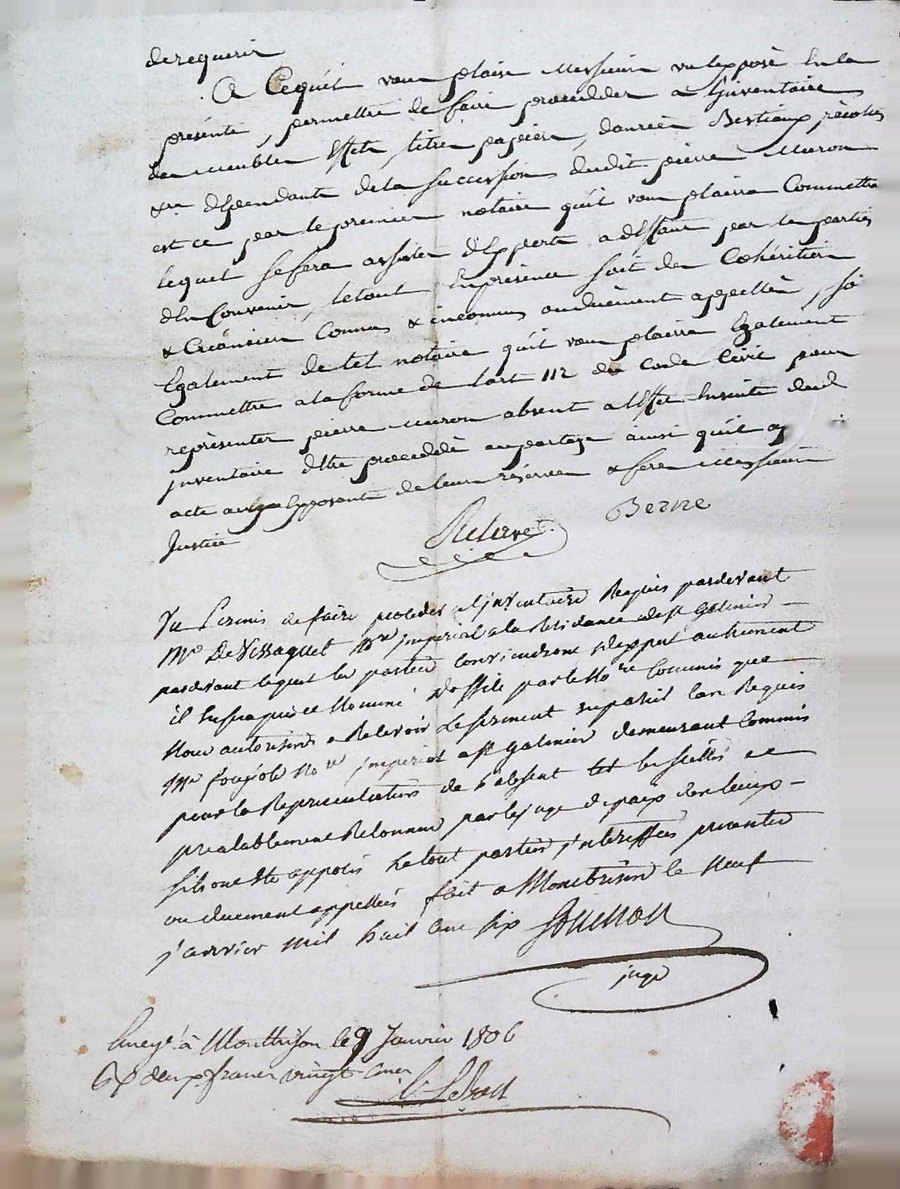 de requerir
A Cequil vous plaise Messieurs vu lexposé En la
présente, permettre de faire proceder a Linventaire
des meubles Effets, titres papiers, danrées Bestiaux, récoltes
&ra dependants de la succession dudit pierre Muron
est ce par le premier notaire quil vous plaira Commettre
lequel se fera assister dExperts adeffaut par les parties
dEn Convenir, letout En présence soit des Cohéritiers
& Créanciers Connus & inconnus ou duëment appellés, soit
Egalement de tel notaire quil vous plaira Egalement
Commettre a la forme de Lart 112 du Code Civil pour
représenter pierre Muron absent a lEffet Ensuite dudt
inventaire dEtre procedé au partage ainsi quil ap
acte aux Exposants de leurs réserves & feres Messieurs
Justice
Berne
Vu Permis de faire proceder a Linventaire Requis pardevant
Me DeVissaguet Nre imperial a la Résidance de st Galmier
pardevant lequel les parties Conviendront dexpert autrement
il En sera pris et Nommé doffice par le Nore Commis que
Nous autorisons a Recevoir Le serment en pareil Cas Requis
Me foujols Nore imperial a st galmier demeurant Commis
pour la Representation de Labsent et les scellés
prealablement Reconnus par le juge de paix des lieux
sils ont Ete apposés Letout parties interessées presentes
ou duement appellées fait a Montbrison le Neuf
janvier mil huit Cent six
juge
Enregé. à Montbrison le 9 Janvier 1806
deux francs vingt Cmes